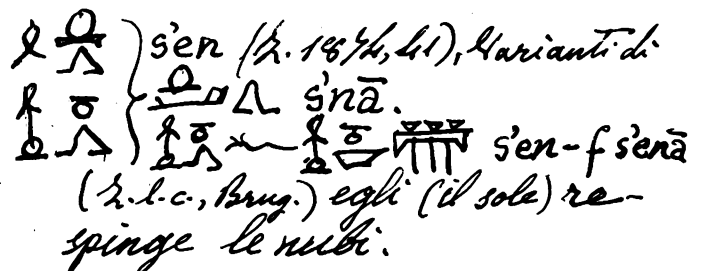 s'en (Z. 1874, 41), Varianti di
s'nā.
s'en-f s'enā
(Z. l. c., Brug.) egli (il sole) re-
spinge le nubi.